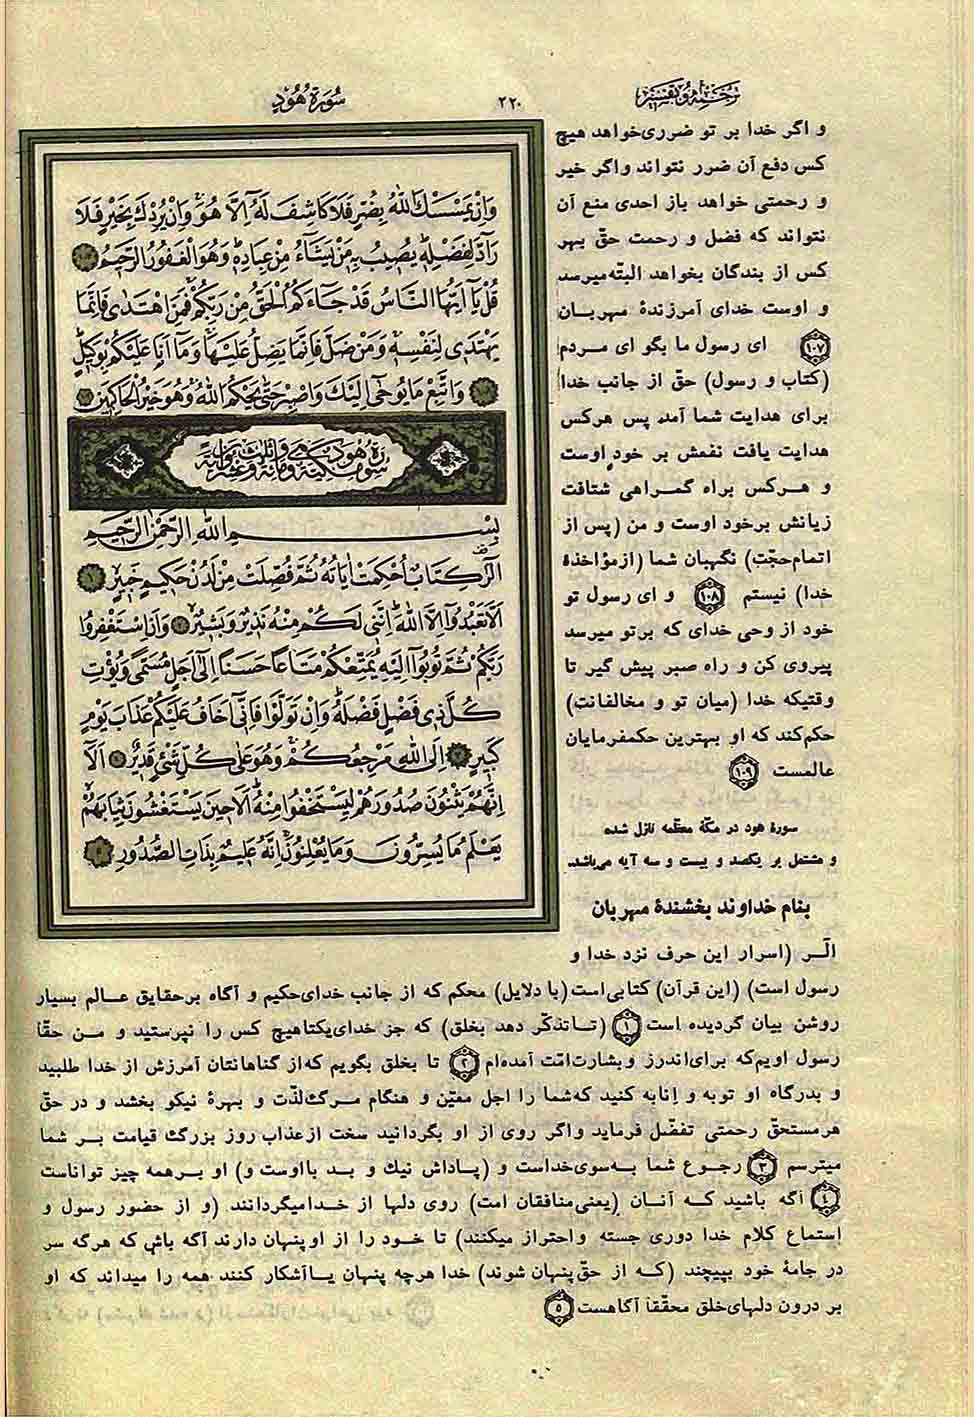 ترجمه و تفسیر
۲۲۰
سُورَة هُود
وَاِنْ یَمْسَسْكَ اللّٰهُ بِضُرٍّ فَلَا كَاشِفَ لَهُ اِلَّا هُوَ وَاِنْ یُرِدْكَ بِخَیْرٍ فَلَا
رَآدَّ لِفَضْلِهِ یُصِیبُ بِهِ مَنْ یَشَآءُ مِنْ عِبَادِهِ وَهُوَ الْغَفُورُ الرَّحِیمُ
قُلْ یَآ اَیُّهَا النَّاسُ قَدْ جَآءَكُمُ الْحَقُّ مِنْ رَبِّكُمْ فَمَنِ اهْتَدٰی فَاِنَّمَا
یَهْتَدِی لِنَفْسِهِ وَمَنْ ضَلَّ فَاِنَّمَا یَضِلُّ عَلَیْهَا وَمَآ اَنَا عَلَیْكُمْ بِوَكِیلٍ
وَاتَّبِعْ مَا یُوحٰی اِلَیْكَ وَاصْبِرْ حَتّٰی یَحْكُمَ اللّٰهُ وَهُوَ خَیْرُ الْحَاكِمِینَ
بِسْمِ اللّٰهِ الرَّحْمٰنِ الرَّحِیمِ
الٓرٰ كِتَابٌ اُحْكِمَتْ اٰیَاتُهُ ثُمَّ فُصِّلَتْ مِنْ لَدُنْ حَكِیمٍ خَبِیرٍ ۱
اَلَّا تَعْبُدُوٓا اِلَّا اللّٰهَ اِنَّنِی لَكُمْ مِنْهُ نَذِیرٌ وَبَشِیرٌ ۲ وَاَنِ اسْتَغْفِرُوا
رَبَّكُمْ ثُمَّ تُوبُوٓا اِلَیْهِ یُمَتِّعْكُمْ مَتَاعًا حَسَنًا اِلٰٓی اَجَلٍ مُسَمًّی وَیُؤْتِ
كُلَّ ذِی فَضْلٍ فَضْلَهُ وَاِنْ تَوَلَّوْا فَاِنِّٓی اَخَافُ عَلَیْكُمْ عَذَابَ یَوْمٍ
كَبِیرٍ ۳ اِلَی اللّٰهِ مَرْجِعُكُمْ وَهُوَ عَلٰی كُلِّ شَیْءٍ قَدِیرٌ ۴ اَلَآ
اِنَّهُمْ یَثْنُونَ صُدُورَهُمْ لِیَسْتَخْفُوا مِنْهُ اَلَا حِینَ یَسْتَغْشُونَ ثِیَابَهُمْ
یَعْلَمُ مَا یُسِرُّونَ وَمَا یُعْلِنُونَ اِنَّهُ عَلِیمٌ بِذَاتِ الصُّدُورِ ۵
و اگر خدا بر تو ضرری خواهد هیچ
کس دفع آن ضرر نتواند و اگر خیر
و رحمتی خواهد باز احدی منع آن
نتواند که فضل و رحمت حقّ بهر
کس از بندگان بخواهد البتّه میرسد
و اوست خدای آمرزندهٔ مهربان
۱۰۷ ای رسول ما بگو ای مردم
(کتاب و رسول) حقّ از جانب خدا
برای هدایت شما آمد پس هر کس
هدایت یافت نفعش بر خود اوست
و هر کس براه گمراهی شتافت
زیانش بر خود اوست و من (پس از
اتمام حجّت) نگهبان شما (از مؤاخذهٔ
خدا) نیستم ۱۰۸ و ای رسول تو
خود از وحی خدای که بر تو میرسد
پیروی کن و راه صبر پیش گیر تا
وقتیکه خدا (میان تو و مخالفانت)
حکم کند که او بهترین حکمفرمایان
عالمست ۱۰۹
سورهٔ هود در مکّهٔ معظّمه نازل شده
و مشتمل بر یکصد و بیست و سه آیه می‌باشد.
بنام خداوند بخشندهٔ مهربان
الٓر (اسرار این حرف نزد خدا و
رسول است) (این قرآن) کتابی است (با دلایل) محکم که از جانب خدای حکیم و آگاه بر حقایق عالم بسیار
روشن بیان گردیده است ۱ (تا تذکّر دهد بخلق) که جز خدای یکتا هیچ کس را نپرستید و من حقّا
رسول اویم که برای اندرز و بشارت امّت آمده‌ام ۲ تا بخلق بگویم که از گناهانتان آمرزش از خدا طلبید
و بدرگاه او توبه و انابه کنید که شما را اجل معیّن و هنگام مرگ لذّت و بهرهٔ نیکو بخشد و در حقّ
هر مستحقّ رحمتی تفضّل فرماید و اگر روی از او بگردانید سخت از عذاب روز بزرگ قیامت بر شما
میترسم ۳ رجوع شما به سوی خداست و (پاداش نیک و بد با اوست و) او بر همه چیز تواناست
۴ آگه باشید که آنان (یعنی منافقان امت) روی دلها از خدا میگردانند (و از حضور رسول و
استماع کلام خدا دوری جسته و احتراز میکنند) تا خود را از او پنهان دارند آگه باش که هرگه سر
در جامهٔ خود بپیچند (که از حقّ پنهان شوند) خدا هرچه پنهان یا آشکار کنند همه را میداند که او
بر درون دلهای خلق محقّقا آگاهست ۵